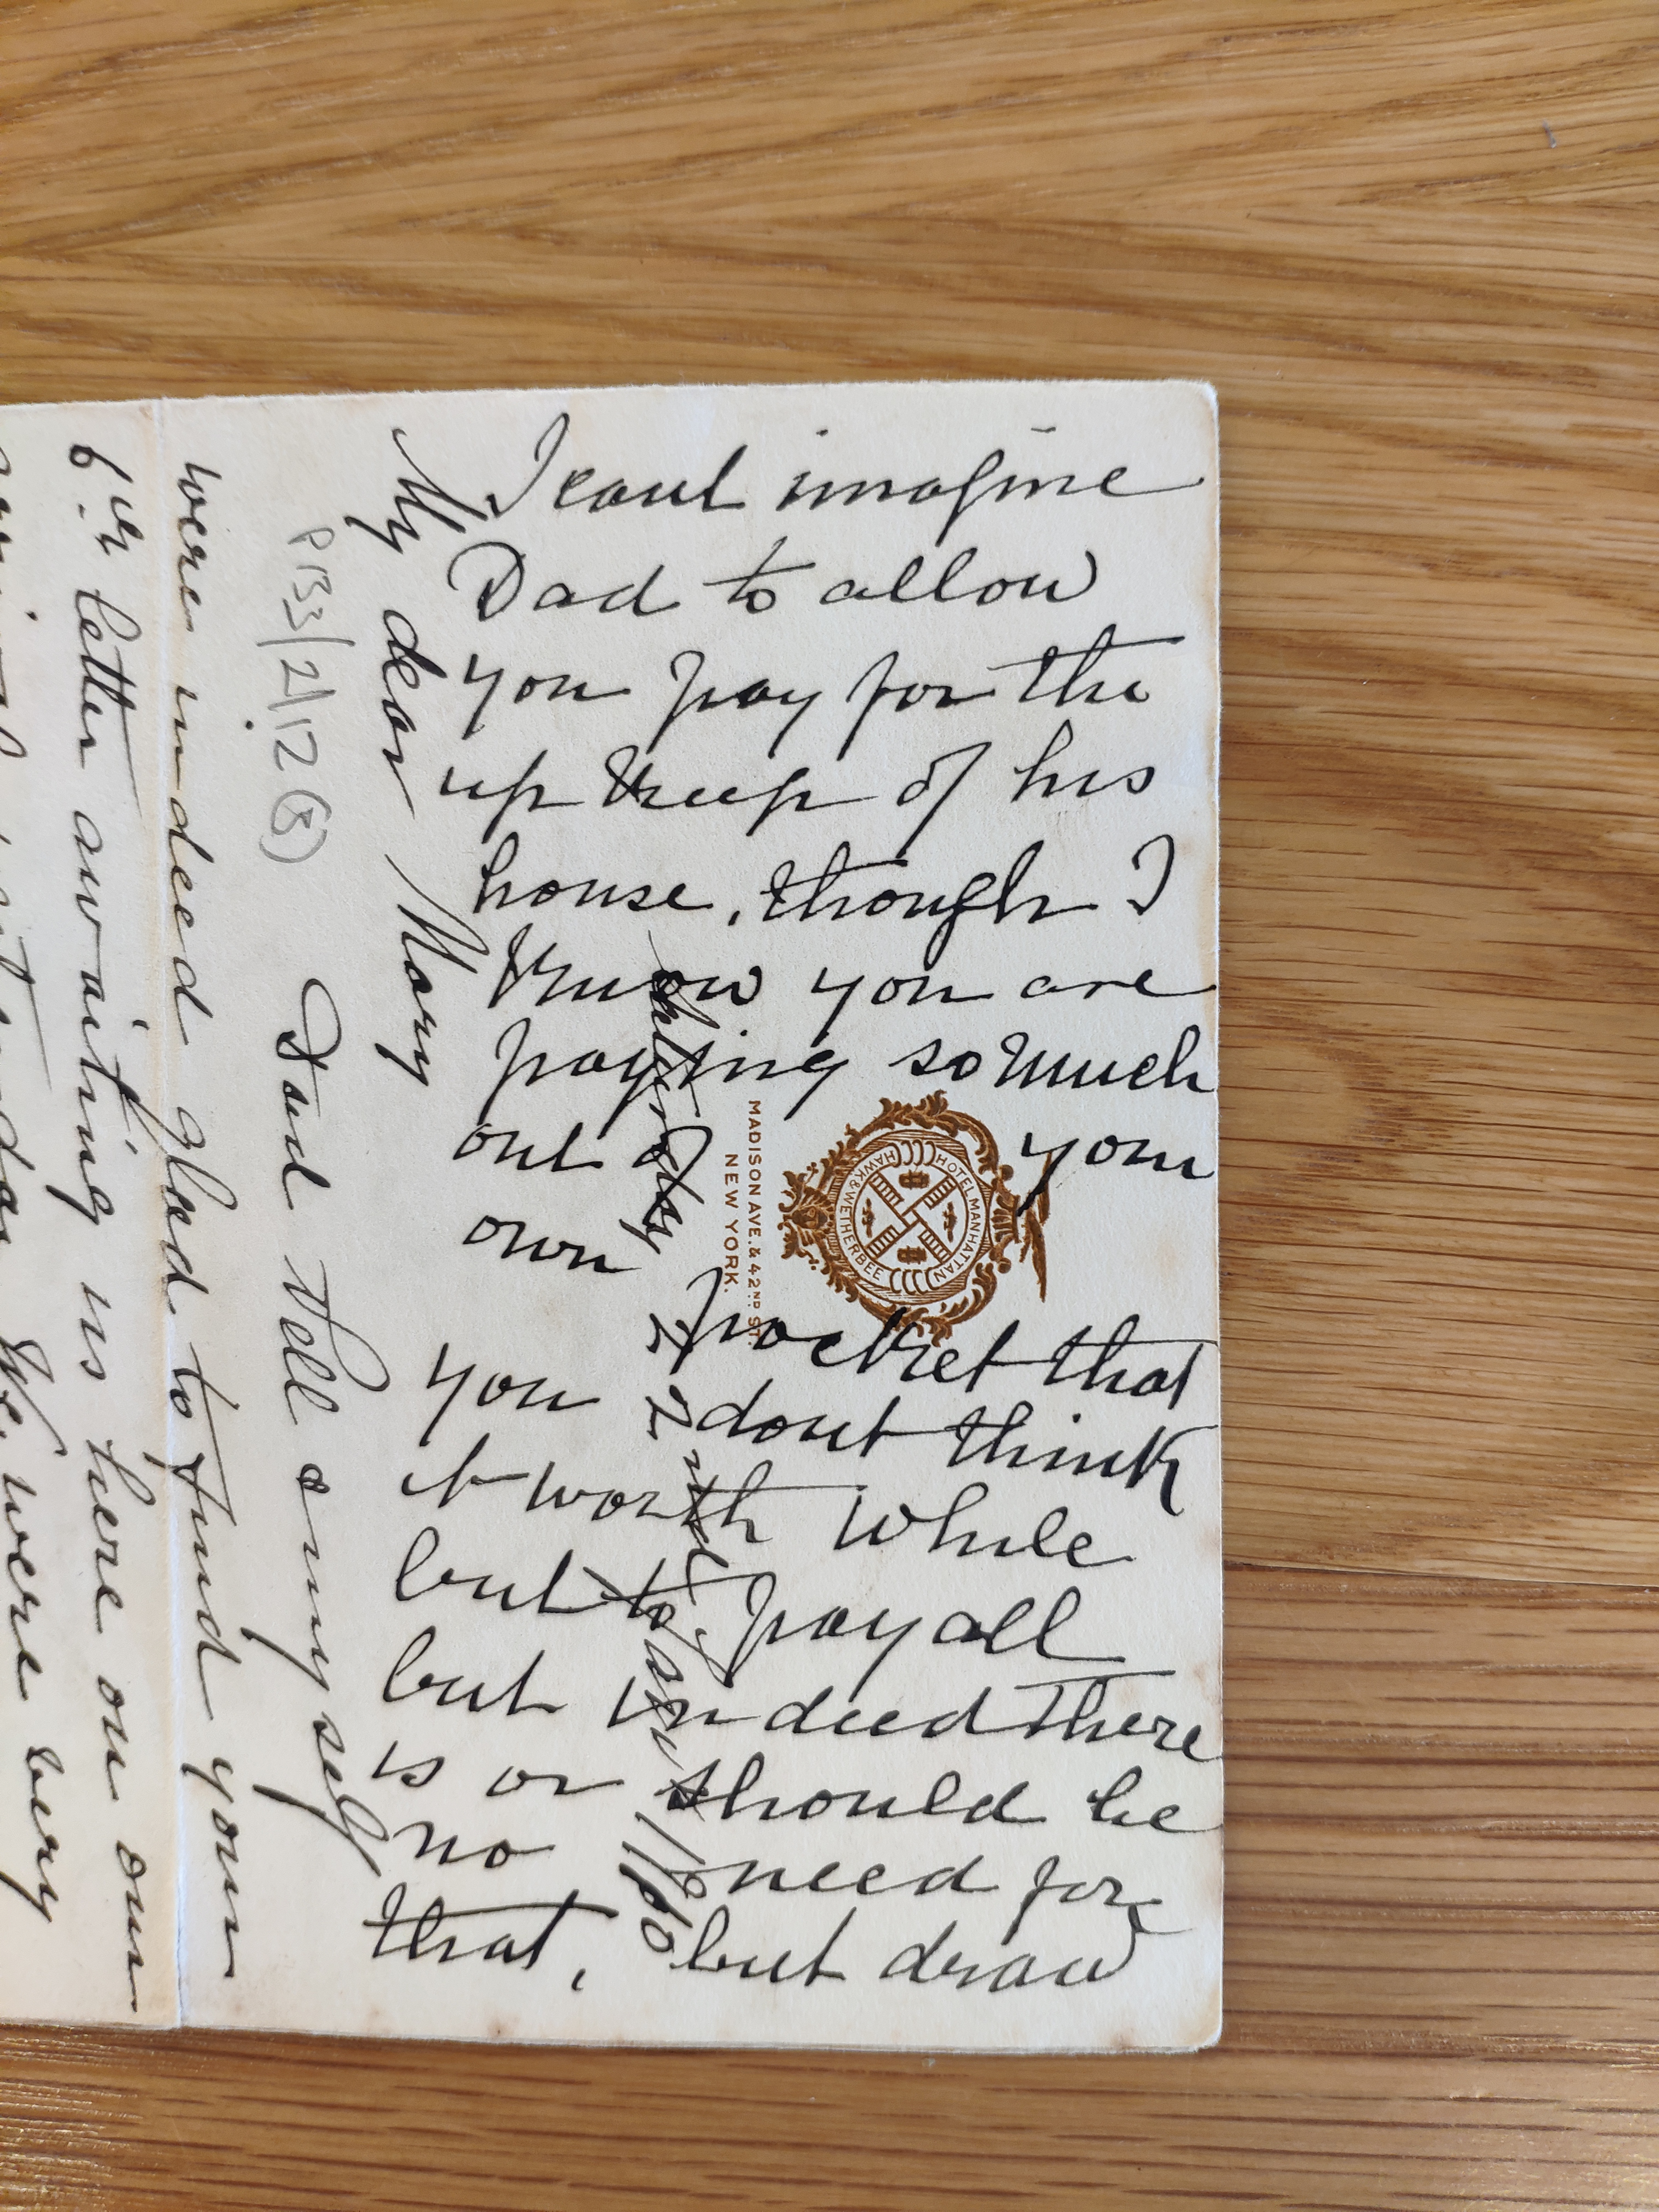 I cant imagine
Dad to allow
you pay for the
up keep of his
house, though I
know you are
paying so much
out of your
own pocket that
you dont think
it worth while
but to pay all
but indeed there
is or should be
no need for
that, but draw
HOTEL MANHATTAN
HAWK & WETHERBEE
MADISON AVE. & 42ND ST.
NEW YORK.
22nd Jany 1900
My dear Mary
P133/2/12(3)
Dad Nell & myself
were indeed glad to find your
6th letter awaiting us here on our
We were very